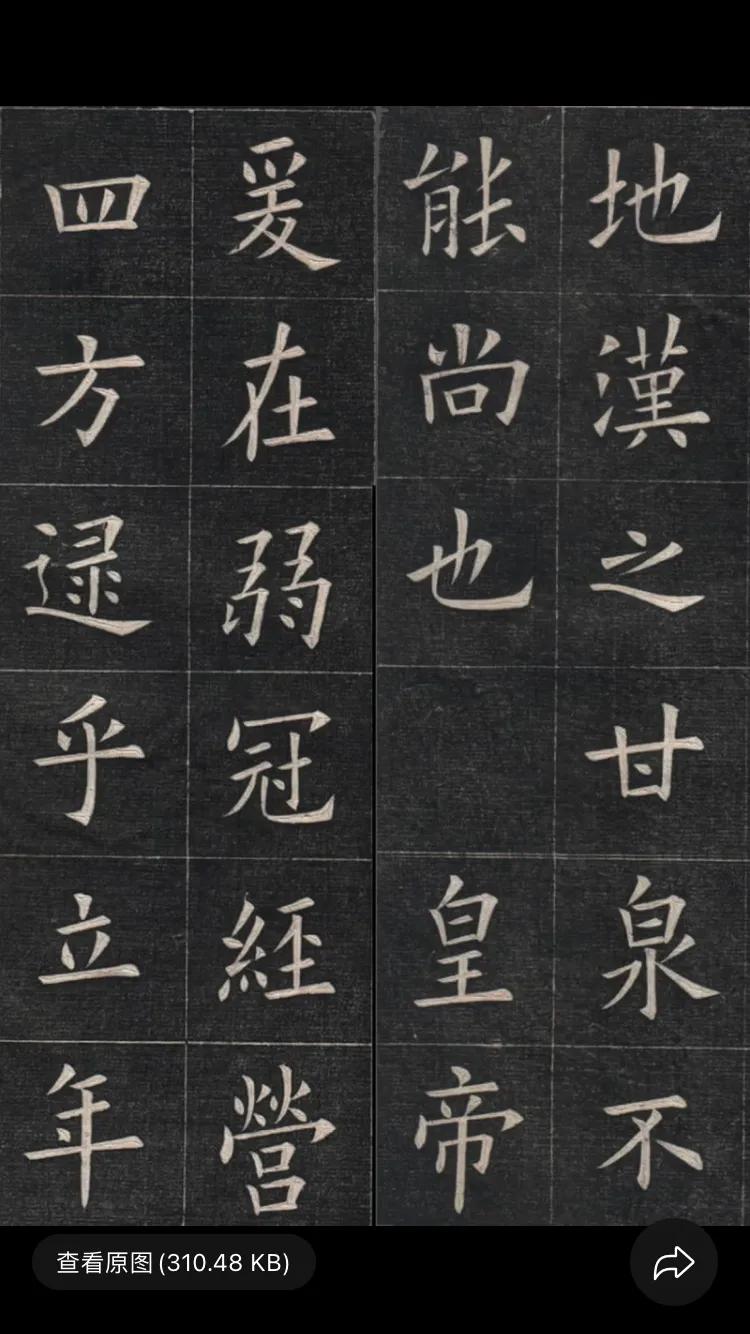 地漢之甘泉不
能尚也 皇帝
爰在弱冠經營
四方逯乎立年
查看原图(310.48 KB)